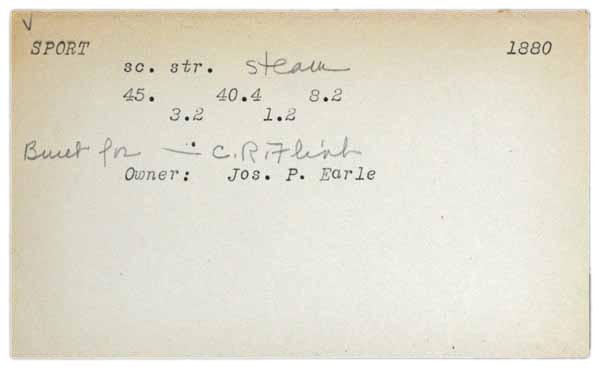 SPORT 1880
sc. str. steam
45. 40.4 8.2
3.2 1.2
Built for — C.R. Flint
Owner: Jos. P. Earle